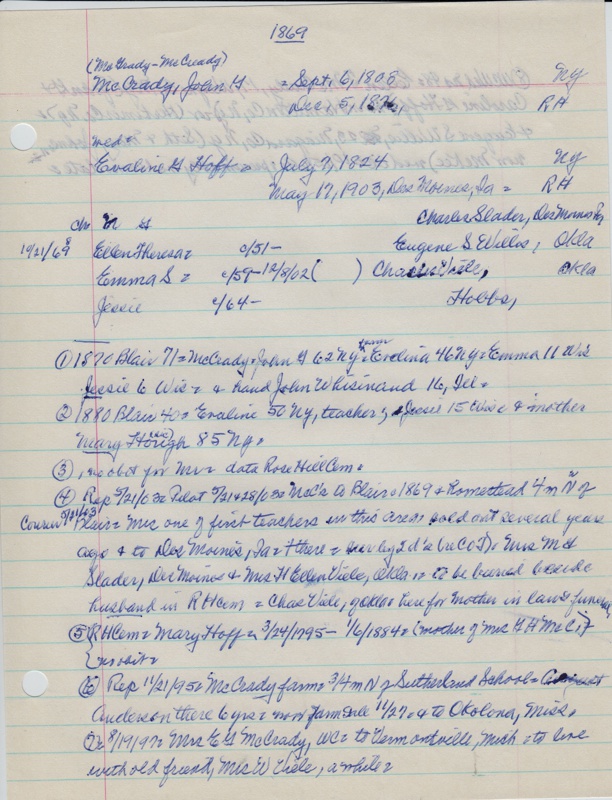 1869
(McGrady-McCready)
McCrady, John H = Sept. 6, 1808 NY
Dec 5, 1896, RH
med
Evaline H Hoff = July 7, 1824 NY
May 17, 1903, Des Moines, Ia = RH
ch Charles Slader, Des Moines
Ellen Theresa = c/51- Eugene S Willis, Okla
Emma S = c/59-12/8/02 ( ) Chas Viele, Okla
Jessie c/64- Hobbs,
① 1870 Blair 71 = McCrady, John H 62 NY = farm Evelina 46 NY = Emma 11 Wis
Jessie 6 Wis = & hand John Whisinand 16, Ill =
② 1880 Blair 40 = Evaline 56 NY, teacher; Jessie 15 Wisc & mother
Mary Hough 85 NY =
③ , no obit for Mr = data Rose Hill Cem =
④ Rep 5/21/03 = Pilot 5/21 & 28/03 = McC's to Blair 1869 & homestead 4 m N of
Courier 5/21/03 Blair = Mrs one of first teachers in this area = sold out several years
ago & to Des Moines, Ia = there = surv by 2 d's = Mrs M H
Slader, Des Moines & Mrs H Ellen Viele, Okla = to be buried beside
husband in RHCem = Chas Viele, Okla here for mother in law's funeral
⑤ RHCem = Mary Hoff = 3/24/1795 - 1/6/1884 = (mother of Mrs
no obit =
⑥ Rep 11/21/95 = McCrady farm = 3/4 m N of Sutherland School =
Anderson there 6 yrs = now farm sale 11/27 = & to Okolona, Miss =
8/19/97 = Mrs E H McCrady, WC = to Vermontville, Mich = to live
with old friend, Mrs W Viele, awhile =